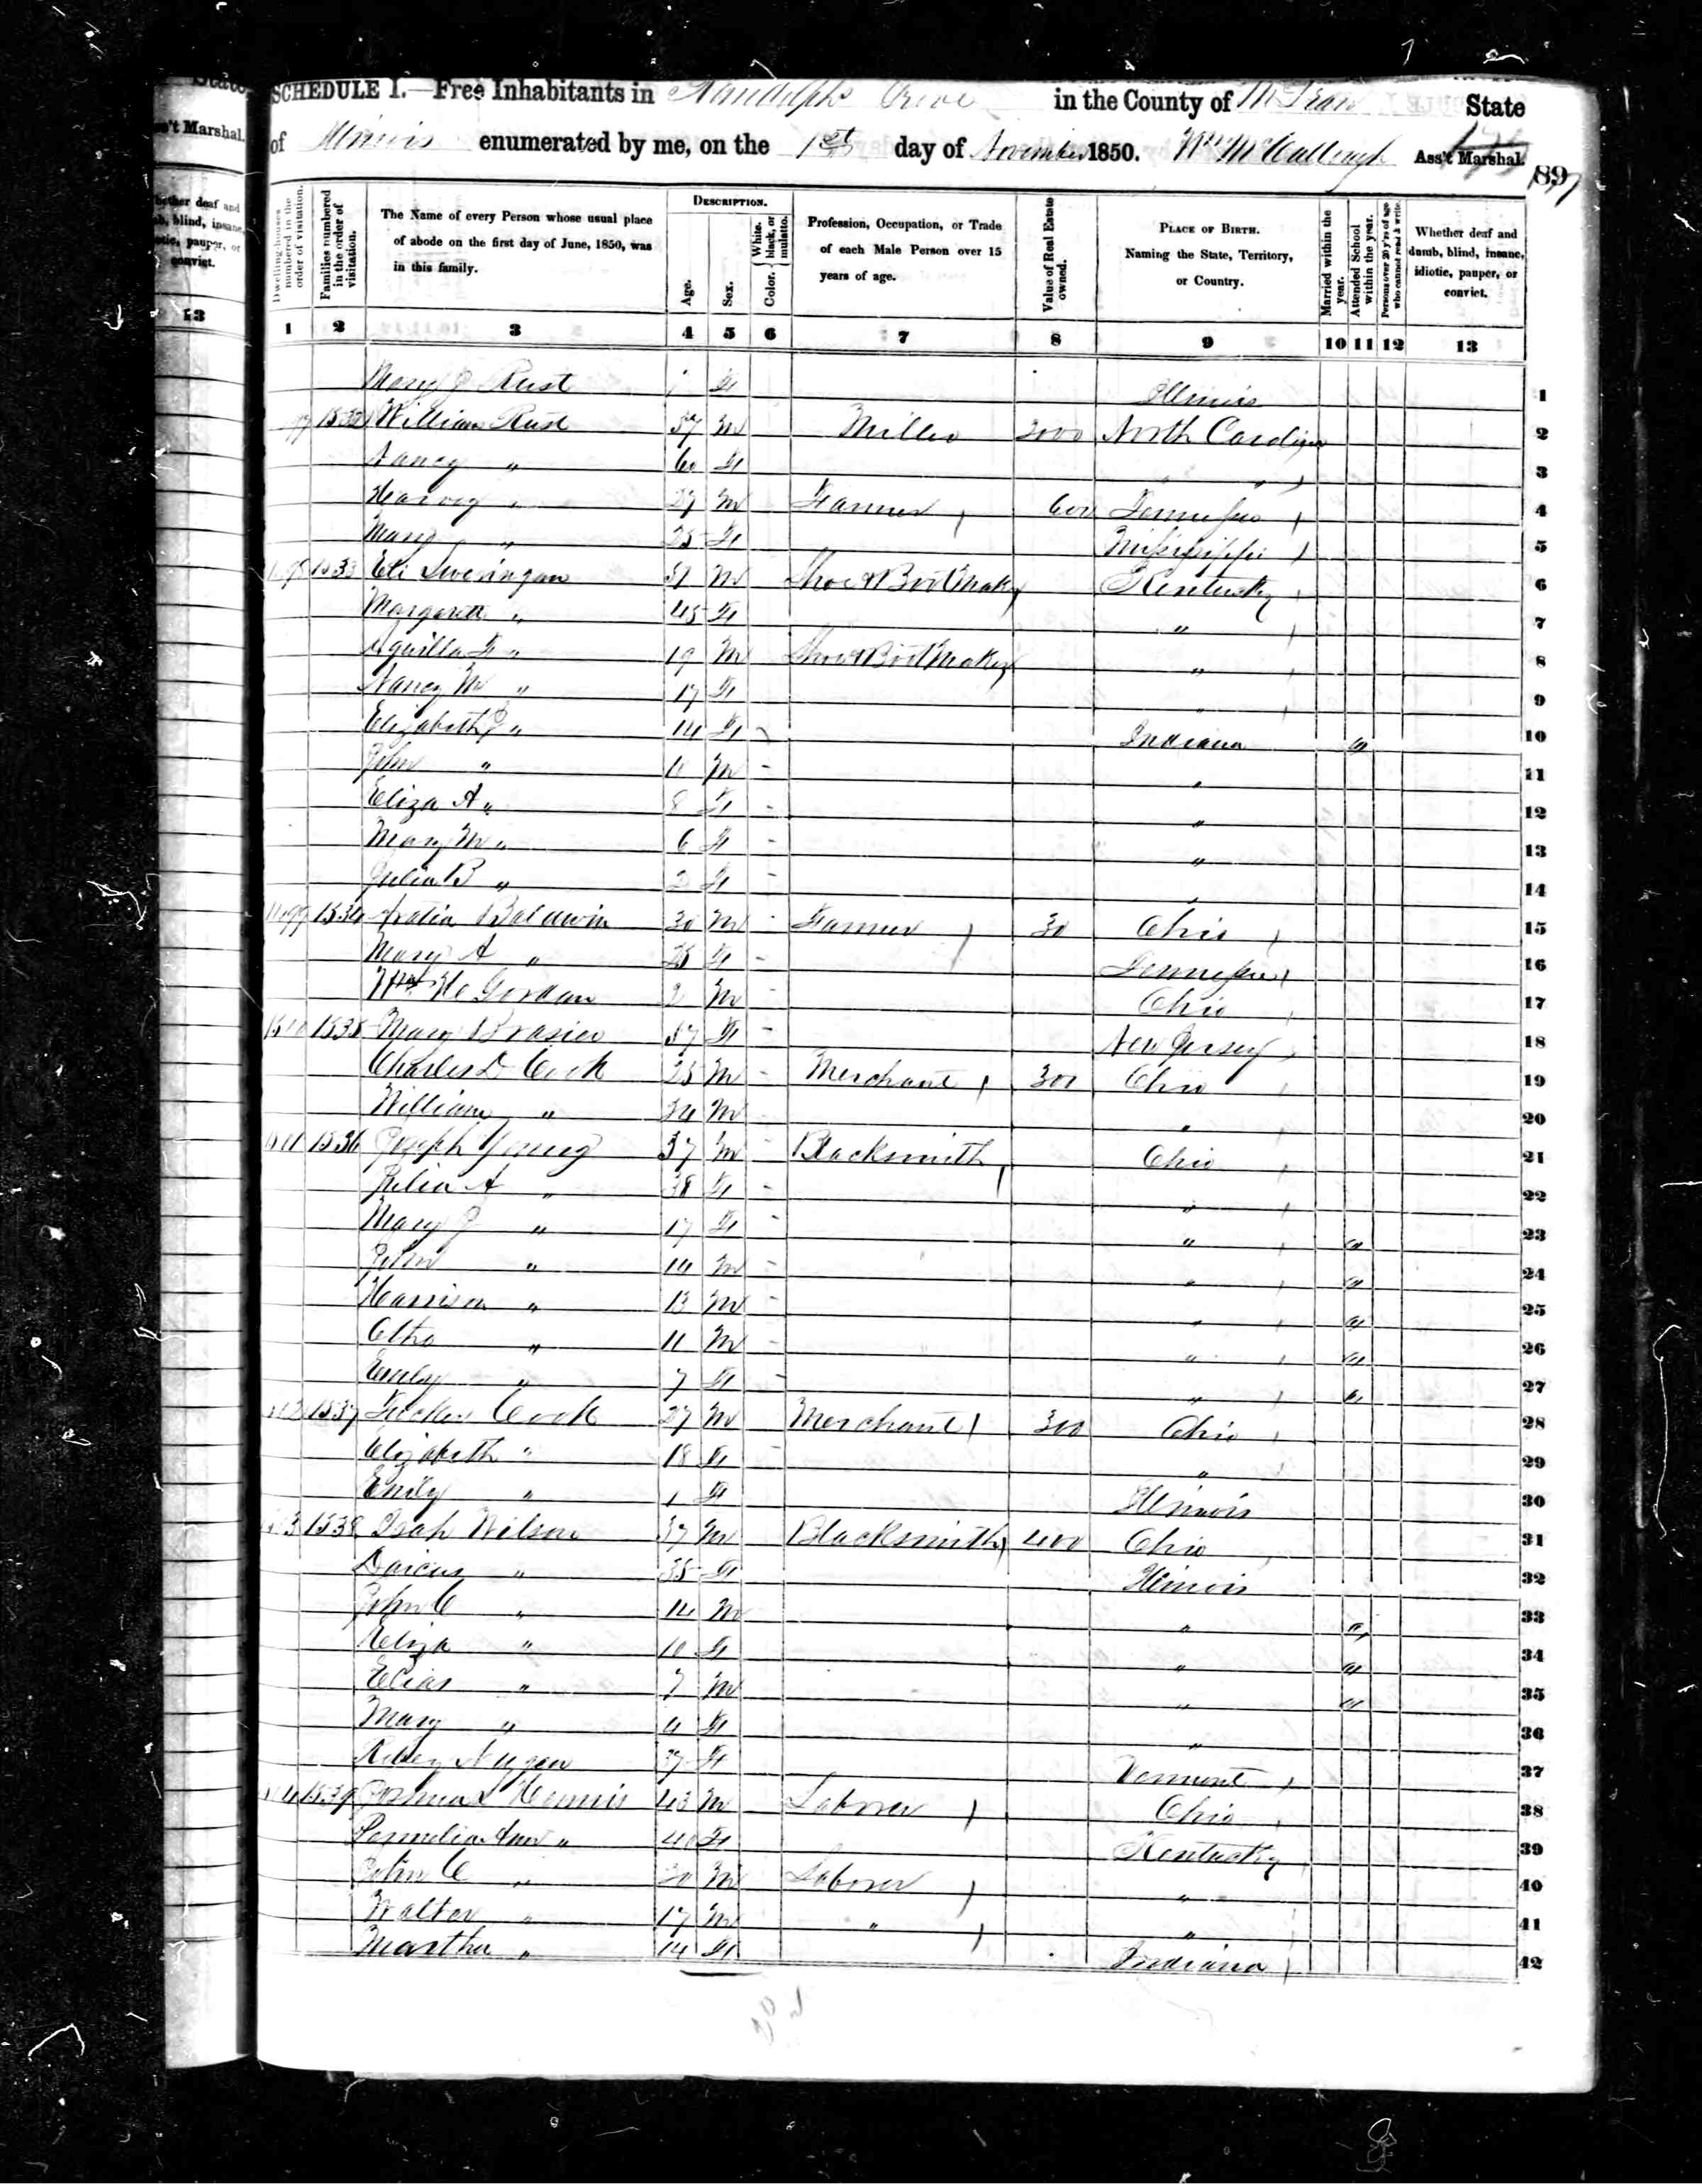 SCHEDULE I.—Free Inhabitants in Randolphs Grove in the County of McLean State
of Illinois enumerated by me, on the 1st day of November 1850. Wm McCullough Ass't Marshal.
89
Dwelling-houses numbered in the order of visitation.
Families numbered in the order of visitation.
The Name of every Person whose usual place of abode on the first day of June, 1850, was in this family.
DESCRIPTION.
Age.
Sex.
Color. White, black, or mulatto.
Profession, Occupation, or Trade of each Male Person over 15 years of age.
Value of Real Estate owned.
PLACE OF BIRTH. Naming the State, Territory, or Country.
Married within the year.
Attended School within the year.
Persons over 20 y'rs of age who cannot read & write.
Whether deaf and dumb, blind, insane, idiotic, pauper, or convict.
1 2 3 4 5 6 7 8 9 10 11 12 13
Mary J Rust F Illinois 1
1532 William Rust 57 M Miller 2000 North Carolina 2
Nancy " 60 F " " 3
Harvey " 27 M Farmer 600 Tennessee 4
Mary " 25 F Mississippi 5
1533 Eli Sweringan 51 M Shoe & Boot Maker Kentucky 6
Margaret " 45 F " 7
Aquilla F " 19 M Shoe & Boot Maker " 8
Nancy M " 17 F " 9
Elizabeth J " 14 F Indiana 10
John " 11 M " 11
Eliza A " 8 F " 12
Mary M " 6 F " 13
Julia B " 2 F " 14
1534 Baldwin 30 M Farmer 30 Ohio 15
Mary A " 25 F Tennessee 16
Wm H Gordan 2 M Ohio 17
1535 Mary Brasier 57 F New Jersey 18
Charles D Cook 25 M Merchant 300 Ohio 19
William " 24 M " 20
1536 Joseph Young 37 M Blacksmith Ohio 21
Julia A " 38 F " 22
Mary J " 17 F " 23
John " 14 M " 24
Harrison " 13 M " 25
Otho " 11 M " 26
Emily " 7 F " 27
1537 Cook 27 M Merchant 300 Ohio 28
Elizabeth " 18 F " 29
Emily " 1 F Illinois 30
1538 Isah Wilson 37 M Blacksmith 400 Ohio 31
Darcus " 35 F Illinois 32
John C " 14 M " 33
Eliza " 10 F " 34
Elias " 7 M " 35
Mary " 4 F " 36
37 F Vermont 37
1539 Joshua L Hennis 43 M Laborer Ohio 38
Permelia Ann " 40 F Kentucky 39
John C " 20 M Laborer " 40
Walter " 17 M " " 41
Martha " 14 F Indiana 42